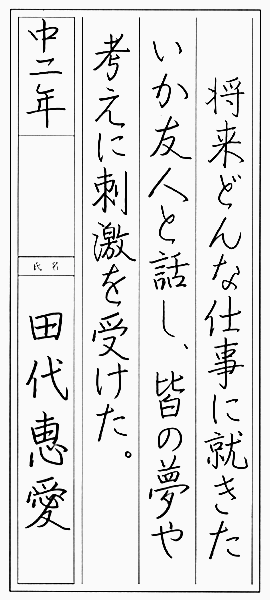 将来どんな仕事に就きた
いか友人と話し、皆の夢や
考えに刺激を受けた。
中二年
氏名
田代恵愛